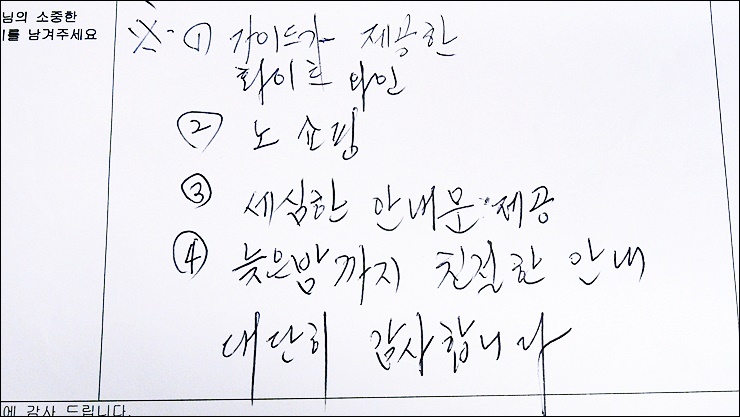 님의 소중한
를 남겨주세요
※ ① 가이드가 제공한
화이트 와인
② 노 쇼핑
③ 세심한 안내문 제공
④ 늦은밤까지 친절한 안내
대단히 감사합니다
에 감사 드립니다.